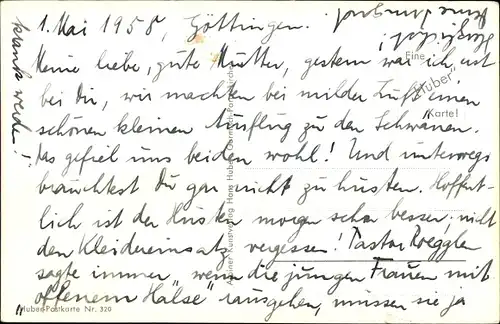 1. Mai 1958, Göttingen.
Meine liebe, gute Mutter, gestern war ich erst
bei Dir, wir machten bei milder Luft einen
schönen kleinen Ausflug zu den Schwänen.
Das gefiel uns beiden wohl! Und unterwegs
brauchtest Du gar nicht zu husten. Hoffent-
lich ist der Husten morgen schon besser, nicht
den Kleidereinsatz vergessen! Pastor Roeggler
sagte immer, „wenn die jungen Frauen mit
offenem Halse" rausgehen, müssen sie ja
krank werden!"
Eine
"Huber"
Karte!
Huber-Postkarte Nr. 320
Kunstverlag Hans Huber, Garmisch-Partenkirchen